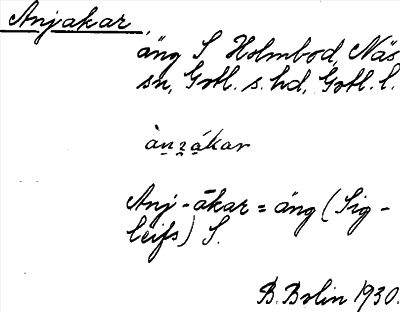 Anjakar,
äng S Holmbod, Näs
sn, Gotl. s. hd, Gotl. l.
ànʒákar
Anj-åkar = äng (Sig-
leifs) S.
B. Bolin 1930.